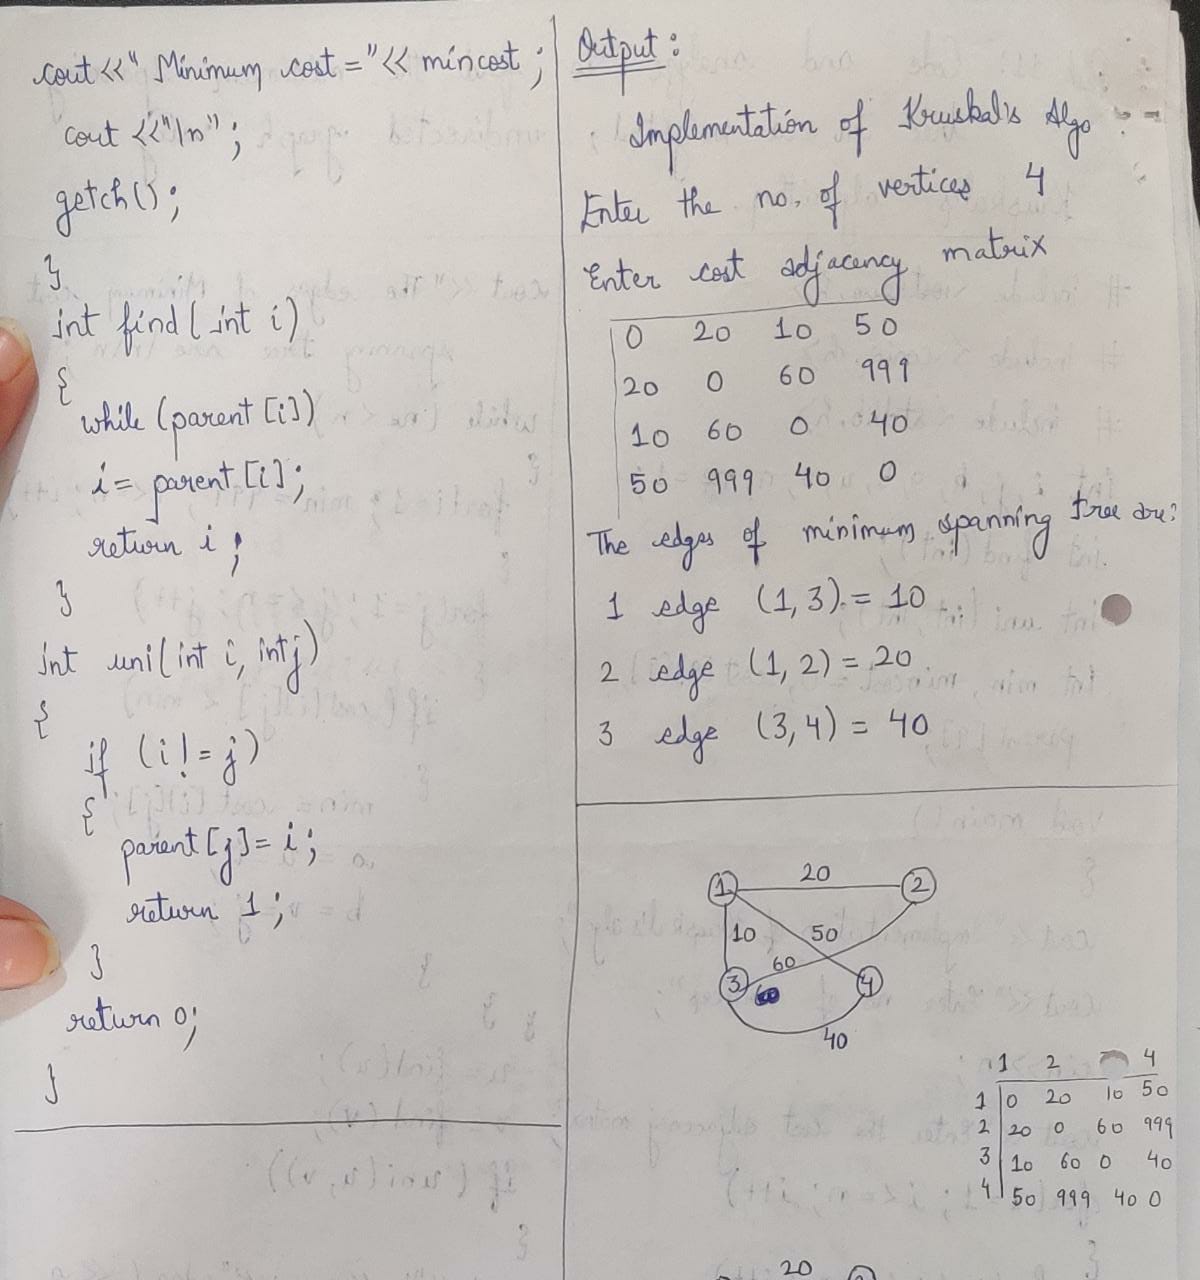 cout <<" Minimum cost = "<< mincost ;
cout <<"\n" ;
getch();
}
int find( int i)
{
while (parent [i])
i = parent [i];
return i ;
}
int uni( int i, int j)
{
if (i != j)
{
parent [j] = i ;
return 1 ;
}
return 0;
}
Output :
Implementation of Kruskal's Algo
Enter the no. of vertices 4
Enter cost adjacency matrix
0 20 10 50
20 0 60 999
10 60 0 40
50 999 40 0
The edges of minimum spanning tree are:
1 edge (1, 3) = 10
2 edge (1, 2) = 20
3 edge (3, 4) = 40
1 20 2
10 50
60
3 4
40
1 2 4
1 0 20 10 50
2 20 0 60 999
3 10 60 0 40
4 50 999 40 0
20